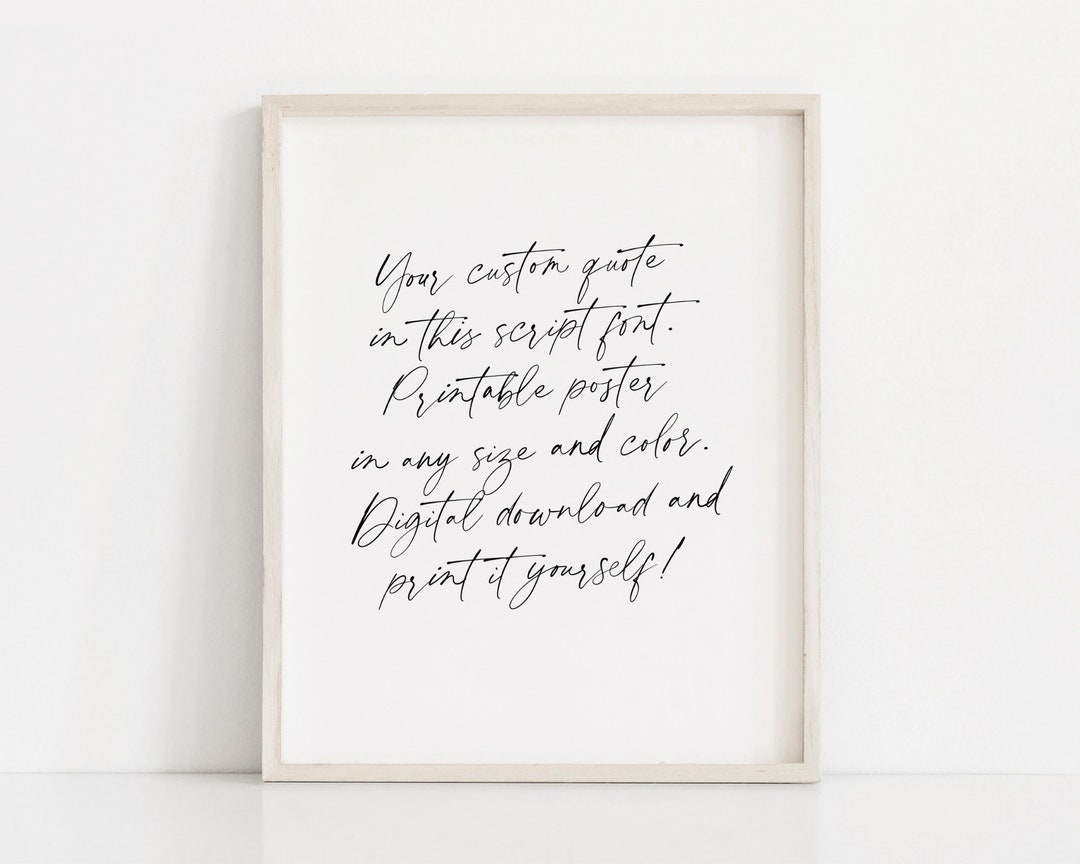 Your custom quote
in this script font.
Printable poster
in any size and color.
Digital download and
print it yourself!